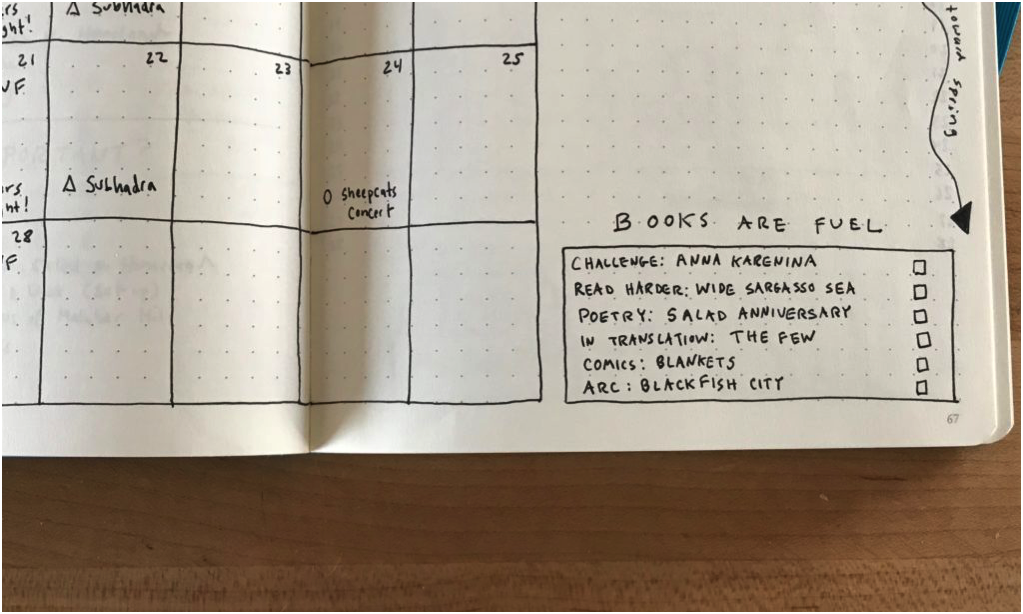 rs
ght!
Δ Subhadra
21
22
23
24
25
VF
rs
ht!
Δ Subhadra
O Sheepcats
Concert
28
F
toward spring
BOOKS ARE FUEL
CHALLENGE: ANNA KARENINA
READ HARDER: WIDE SARGASSO SEA
POETRY: SALAD ANNIVERSARY
IN TRANSLATION: THE FEW
COMICS: BLANKETS
ARC: BLACKFISH CITY
67